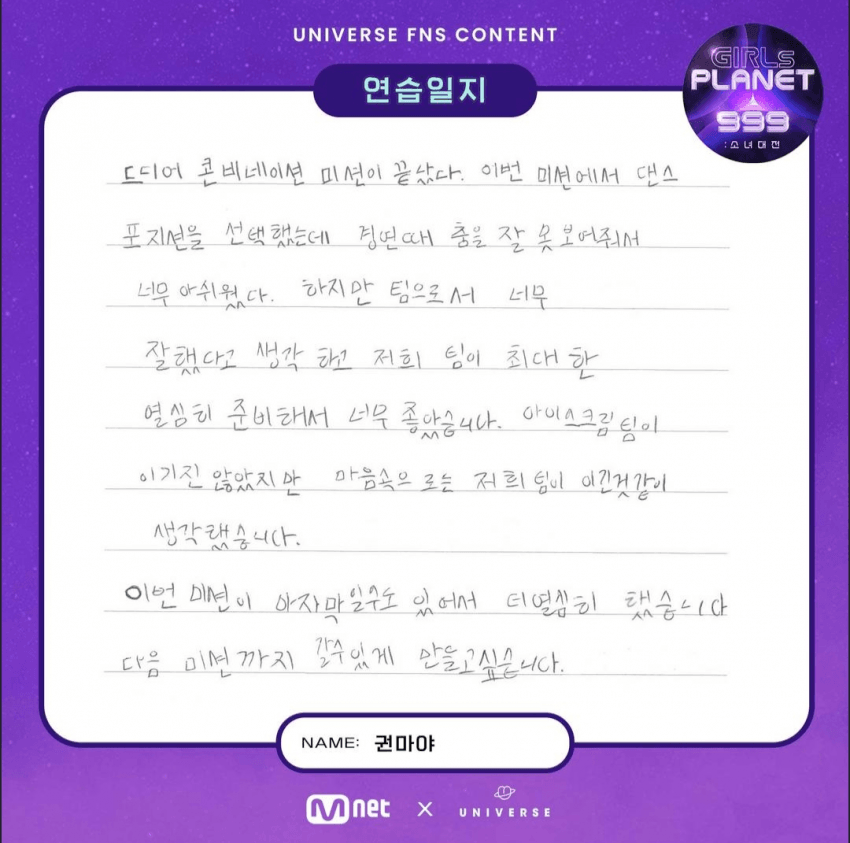 UNIVERSE FNS CONTENT
GIRLS
PLANET
999
:소녀대전
연습일지
드디어 콘비네이션 미션이 끝났다. 이번 미션에서 댄스
포지션을 선택했는데 경연때 춤을 잘 못 보여줘서
너무 아쉬웠다. 하지만 팀으로서 너무
잘했다고 생각 하고 저희 팀이 최대 한
열심히 준비해서 너무 좋았습니다. 아이스크림팀이
이기진 않았지만 마음속으 로는 저희 팀이 이긴것같이
생각했습니다.
이번 미션이 마자막일수도 있어서 더열심히 했습니다
다음 미션까지 갈수있게 만들고싶습니다.
NAME: 권마야
Mnet X UNIVERSE